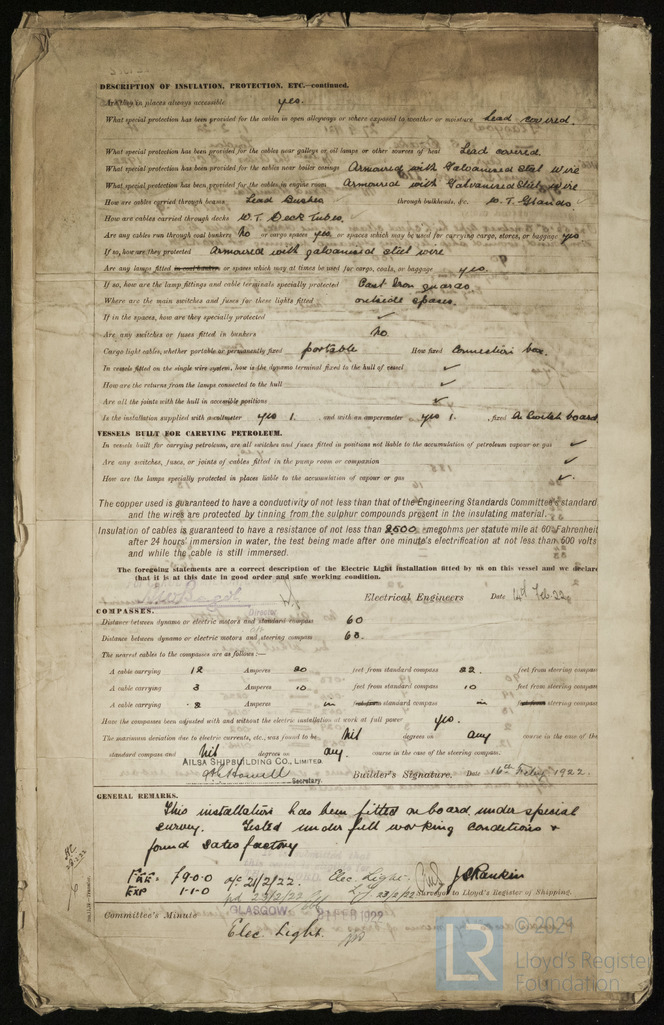 DESCRIPTION OF INSULATION, PROTECTION, ETC.—continued.
Are they in places always accessible yes.
What special protection has been provided for the cables in open alleyways or where exposed to weather or moisture Lead covered.
What special protection has been provided for the cables near galleys or oil lamps or other sources of heat Lead covered.
What special protection has been provided for the cables near boiler casings Armoured with Galvanised Steel Wire
What special protection has been provided for the cables in engine room Armoured with Galvanised Steel Wire
How are cables carried through beams Lead Bushes through bulkheads, &c. W.T. Glands
How are cables carried through decks W.T. Deck Tubes.
Are any cables run through coal bunkers No or cargo spaces yes or spaces which may be used for carrying cargo, stores, or baggage yes
If so, how are they protected Armoured with galvanised steel wire
Are any lamps fitted in coal bunkers or spaces which may at times be used for cargo, coals, or baggage yes.
If so, how are the lamp fittings and cable terminals specially protected Cast Iron guards
Where are the main switches and fuses for these lights fitted outside spaces.
If in the spaces, how are they specially protected ✓
Are any switches or fuses fitted in bunkers No
Cargo light cables, whether portable or permanently fixed portable How fixed Connection box.
In vessels fitted on the single wire system, how is the dynamo terminal fixed to the hull of vessel ✓
How are the returns from the lamps connected to the hull ✓
Are all the joints with the hull in accessible positions ✓
Is the installation supplied with a voltmeter yes 1. and with an amperemeter yes 1. fixed on Switch board
VESSELS BUILT FOR CARRYING PETROLEUM.
In vessels built for carrying petroleum, are all switches and fuses fitted in positions not liable to the accumulation of petroleum vapour or gas ✓
Are any switches, fuses, or joints of cables fitted in the pump room or companion ✓
How are the lamps specially protected in places liable to the accumulation of vapour or gas ✓
The copper used is guaranteed to have a conductivity of not less than that of the Engineering Standards Committee's standard
and the wires are protected by tinning from the sulphur compounds present in the insulating material.
Insulation of cables is guaranteed to have a resistance of not less than 2500 megohms per statute mile at 60° Fahrenheit
after 24 hours' immersion in water, the test being made after one minute's electrification at not less than 600 volts
and while the cable is still immersed.
The foregoing statements are a correct description of the Electric Light installation fitted by us on this vessel and we declare
that it is at this date in good order and safe working condition.
Director
Electrical Engineers Date 14th Feb. 22
COMPASSES.
Distance between dynamo or electric motors and standard compass 60
Distance between dynamo or electric motors and steering compass 63.
The nearest cables to the compasses are as follows:—
A cable carrying 12 Amperes 20 feet from standard compass 22. feet from steering compass
A cable carrying 3 Amperes 10. feet from standard compass 10 feet from steering compass
A cable carrying .2 Amperes in feet from standard compass in feet from steering compass
Have the compasses been adjusted with and without the electric installation at work at full power yes.
The maximum deviation due to electric currents, etc., was found to be Nil degrees on any course in the case of the
standard compass and Nil degrees on any. course in the case of the steering compass.
AILSA SHIPBUILDING CO., LIMITED
Secretary.
Builder's Signature. Date 16th Feby 1922.
GENERAL REMARKS.
This installation has been fitted on board under special
survey. Tested under full working conditions &
found satisfactory
FEE: £9-0-0 21/2/22. Elec. Light.
EXP 1-1-0 23/2/22 J S Rankin
Surveyor to Lloyd's Register of Shipping.
GLASGOW
Committee's Minute
Elec. Light.
LR
© 2021
Lloyd's Register
Foundation